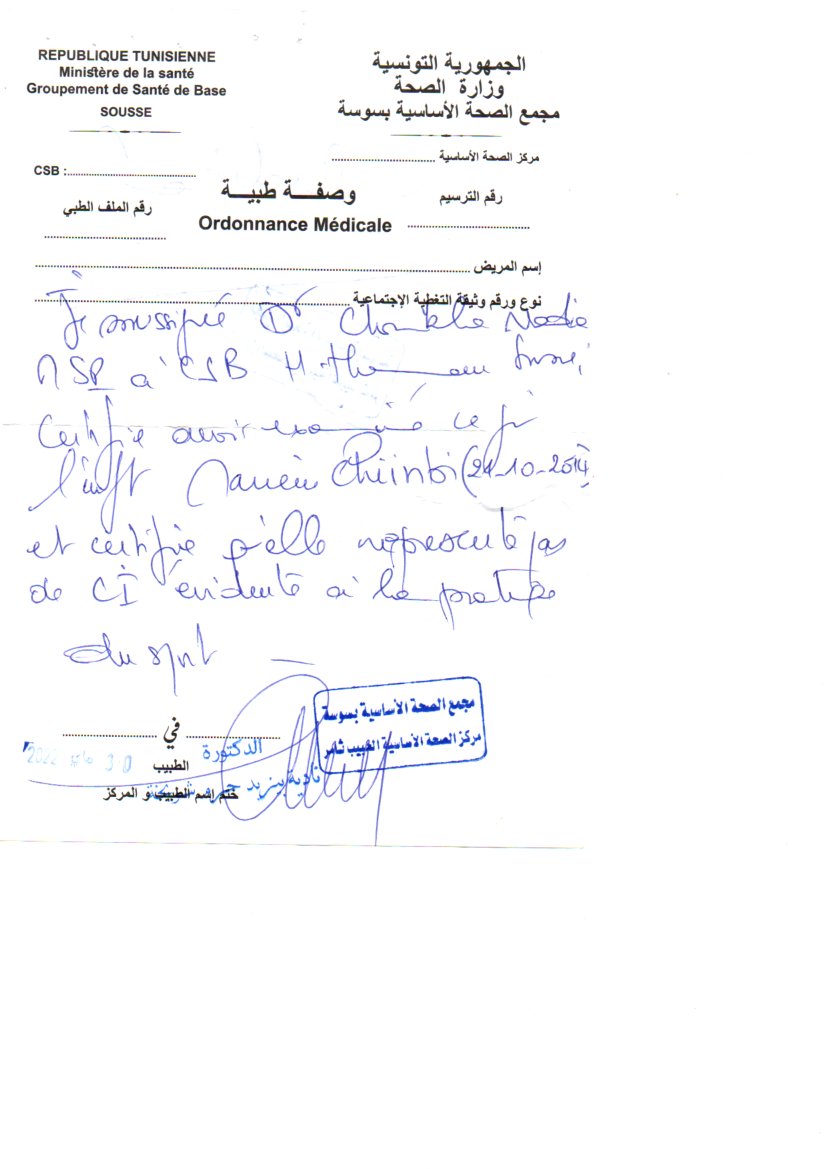 REPUBLIQUE TUNISIENNE
Ministère de la santé
Groupement de Santé de Base
SOUSSE
الجمهورية التونسية
وزارة الصحة
مجمع الصحة الأساسية بسوسة
مركز الصحة الأساسية
CSB :
وصفة طبية
رقم الترسيم
رقم الملف الطبي
Ordonnance Médicale
إسم المريض
نوع ورقم وثيقة التغطية الإجتماعية
Je soussigné Dr Nadia
MSP à CSB H.
Certifie avoir examiné ce jr
l'enft (21-10-2014)
et certifie qu'elle ne présente pas
de CI évidente à la pratique
du sport
مجمع الصحة الأساسية بسوسة
مركز الصحة الأساسية الحبيب ثامر
في
الدكتورة
2022 30
الطبيب
نادية بنزيد
ختم إسم الطبيب و المركز